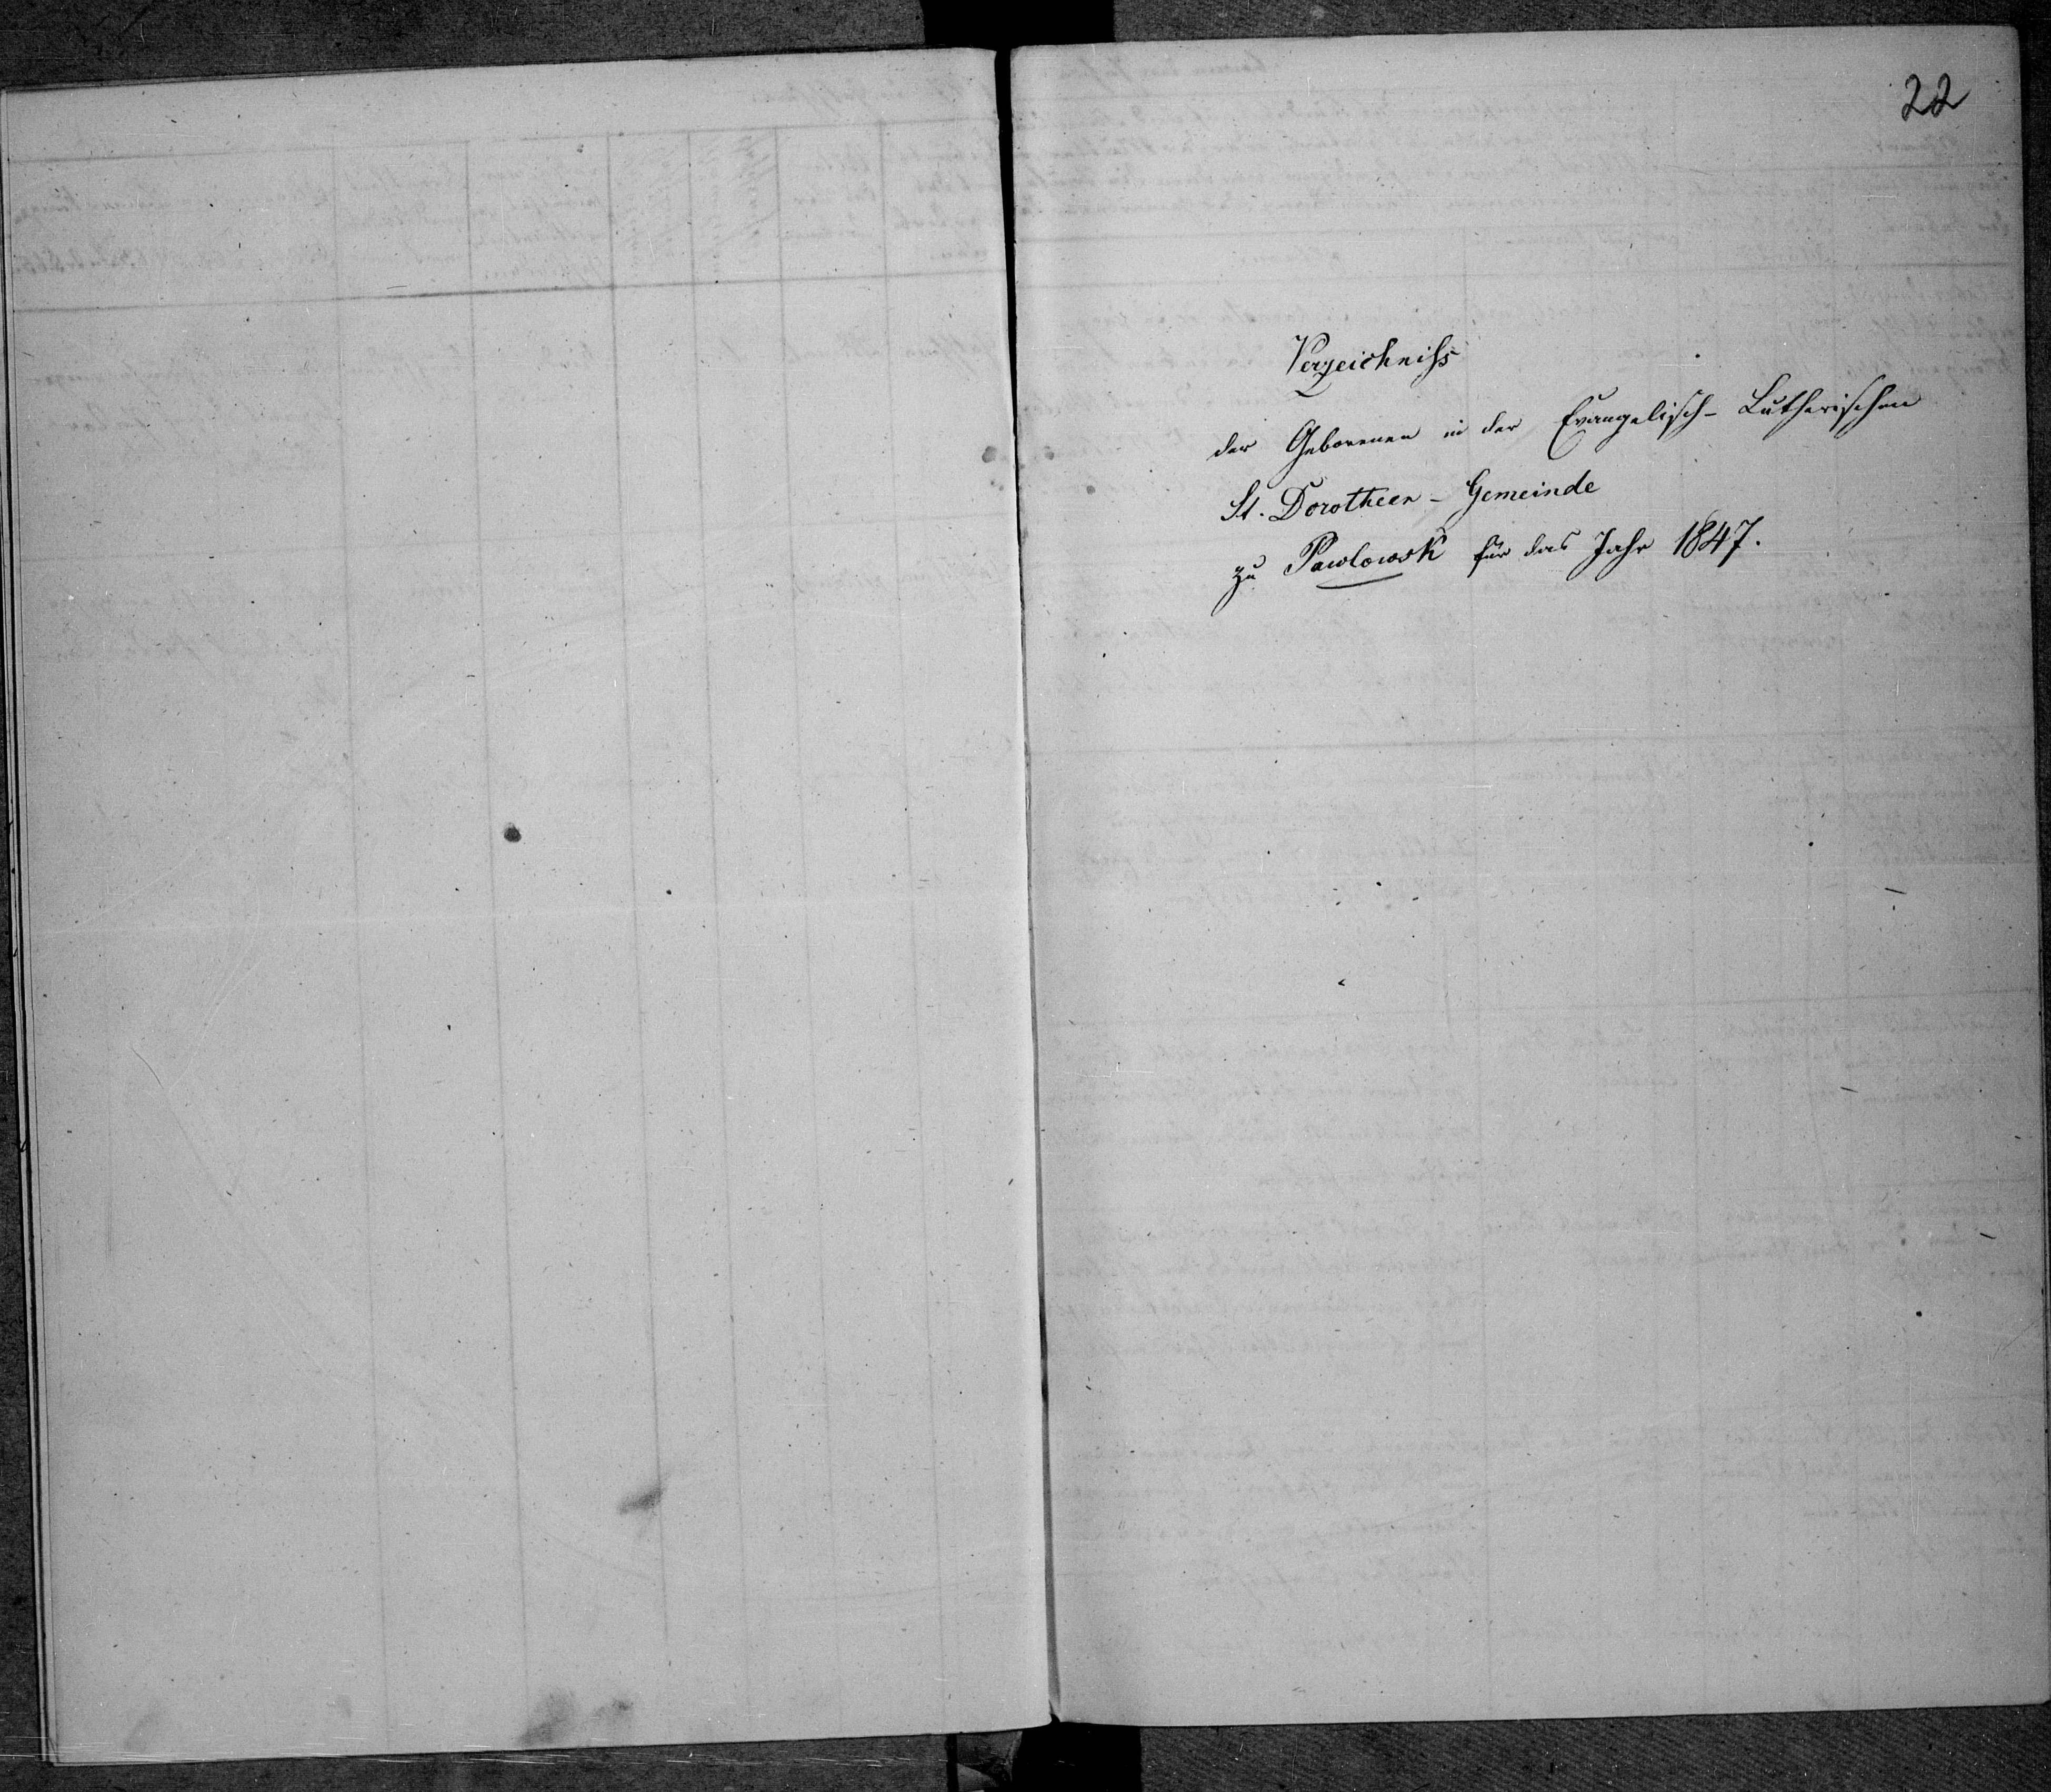 22
Verzeichniſs
der Geborenen in der Evangelisch-Lutherischen
St. Dorotheen-Gemeinde
zu Pawlowsk für das Jahr 1847.